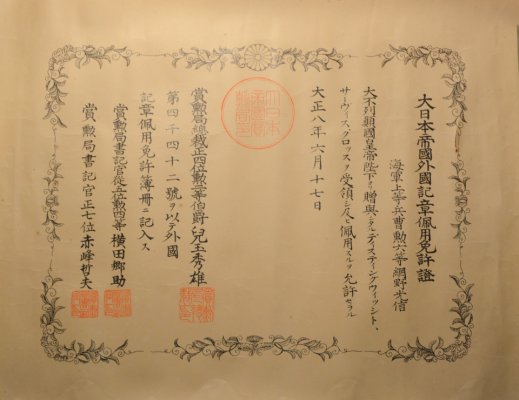 大日本帝國外國記章佩用免許證
海軍上等兵曹勲六等網野光信
大不列顛國皇帝陛下ヨリ贈與シタルディスティングウィッシト、
サーヴィスクロッスヲ受領シ及ヒ佩用スルヲ允許セラル
大正八年六月十七日
大日本
帝國賞
勲局印
賞勲局總裁正四位勲二等伯爵兒玉秀雄
第四千四十二號ヲ以テ外國
記章佩用免許簿冊ニ記入ス
賞勲局書記官從五位勲四等横田郷助
賞勲局書記官正七位赤峰哲夫